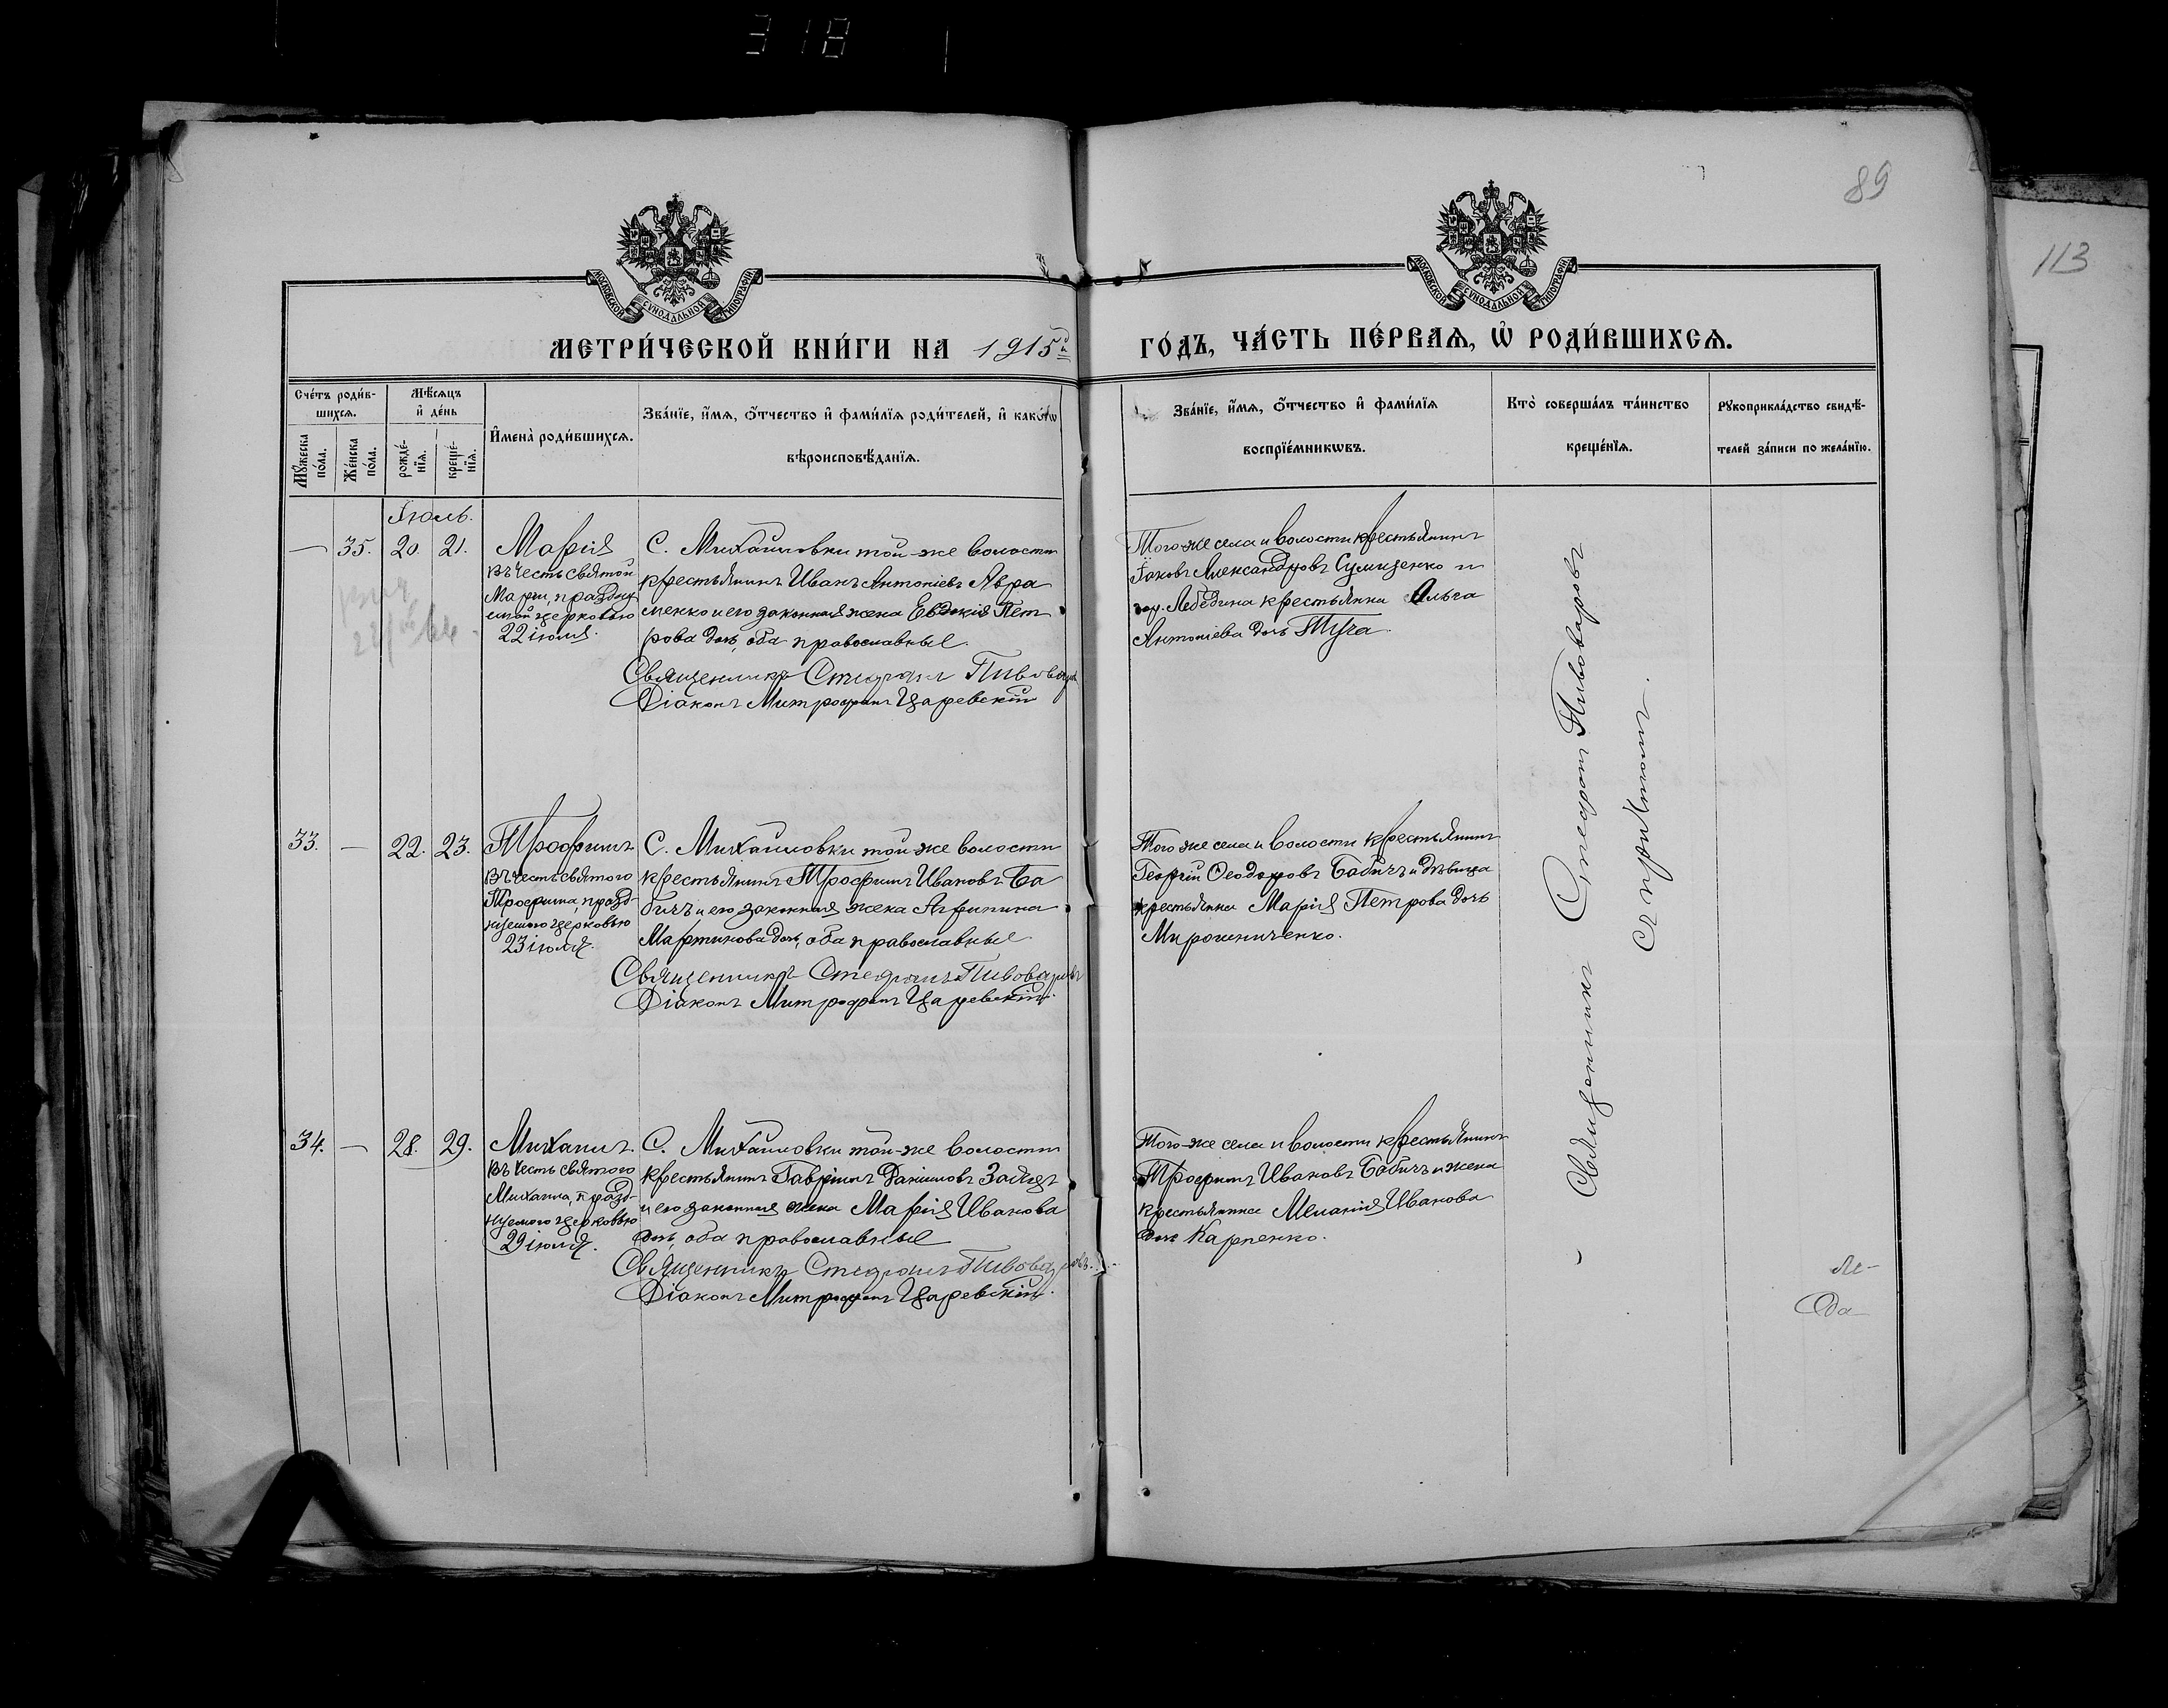 318
89
113
МОСКОВСКОЙ СѴНОДАЛЬНОЙ ТИПОГРАФІИ
МОСКОВСКОЙ СѴНОДАЛЬНОЙ ТИПОГРАФІИ
МЕТРИ́ЧЕСКОЙ КНИ́ГИ НА 1915й
ГО́ДЪ, ЧА́СТЬ ПЕ́РВАѦ, Ѡ҆ РОДИ́ВШИХСѦ.
Сче́тъ роди́в-
шихсѧ.
Мꙋ́жеска по́ла.
Же́нска по́ла.
Мѣ́сѧцъ
и҆ де́нь
рожде́-
нїѧ.
креще́-
нїѧ.
И҆мена̀ роди́вшихсѧ.
Зва́нїе, и҆́мѧ, ѻ҆́тчество и҆ фами́лїѧ роди́телей, и҆ како́гѡ
вѣроисповѣ́данїѧ.
Зва́нїе, и҆́мѧ, ѻ҆́тчество и҆ фами́лїѧ
воспрїе́мникѡвъ.
Кто̀ соверша́лъ та́инство
креще́нїѧ.
Рꙋкоприкла́дство свидѣ́-
телей за́писи по жела́нїю.
Іюль.
— 35. 20. 21.
Марія
въ честь святой
Маріи, праздну
емой церковью
22 іюля.
С. Михайловки той-же волости
крестьянинъ Иванъ Антоніевъ Авра
менко и его законная жена Евдокія Пет
рова дочь, оба православные.
Священникъ Стефанъ Пивоваровъ
Діаконъ Митрофанъ Царевскій
Того-же села и волости крестьянинъ
Іаковъ Александровъ Сумщенко и
гор. Лебедина крестьянка Ольга
Антоніева дочь Туча.
33. — 22. 23.
Трофимъ
въ честь святого
Трофима, празд-
нуемого церковью
23 іюля.
С. Михайловки той-же волости
крестьянинъ Трофимъ Ивановъ Ба
бичъ и его законная жена Агрипина
Мартинова дочь, оба православные
Священникъ Стефанъ Пивоваровъ
Діаконъ Митрофанъ Царевскій.
Того же села и волости крестьянинъ
Георгій Ѳеодоровъ Бабичъ и дѣвица
крестьянка Марія Петрова дочь
Мирошниченко.
34. — 28. 29.
Михаилъ
въ честь святого
Михаила, празд-
нуемого церковью
29 іюля.
С. Михайловки той-же волости
крестьянинъ Гавріилъ Даниловъ Заяцъ
и его законная жена Марія Иванова
дочь, оба православные
Священникъ Стефанъ Пивоваровъ.
Діаконъ Митрофанъ Царевскій.
Того-же села и волости крестьянинъ
Трофимъ Ивановъ Бабичъ и жена
крестьянина Меланія Иванова
дочь Карпенко.
Священникъ Стефанъ Пивоваровъ
съ причтомъ.
Ле-